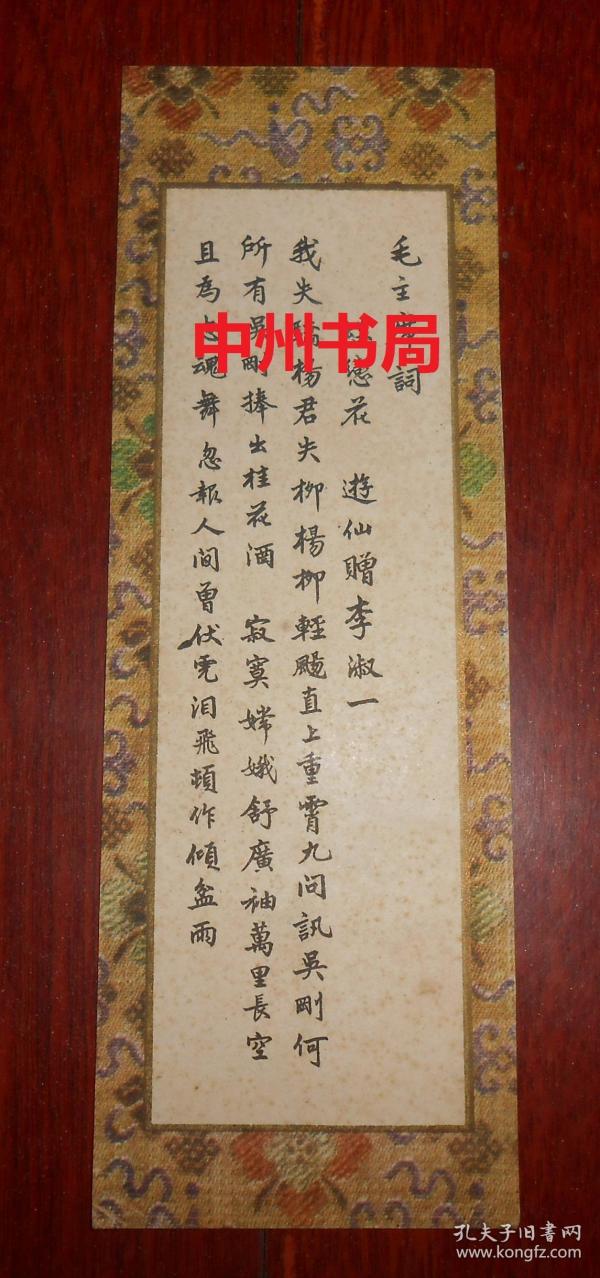 毛主席詞
戀花 遊仙贈李淑一
我失驕楊君失柳楊柳輕颺直上重霄九問訊吳剛何
所有吳剛捧出桂花酒 寂寞嫦娥舒廣袖萬里長空
且為忠魂舞忽報人間曾伏虎泪飛頓作傾盆雨
中州书局
孔夫子旧书网
www.kongfz.com